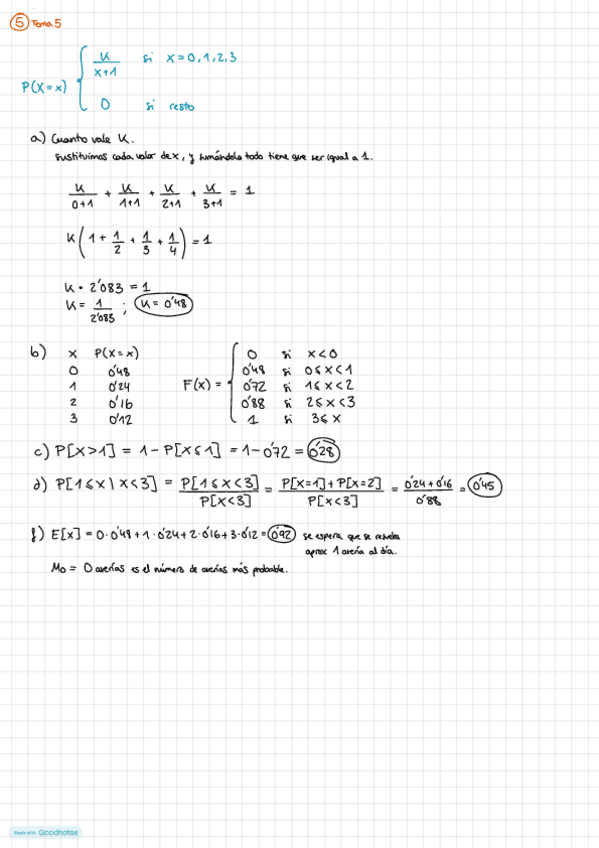 5 Tema 5
P(X=x) { K/(x+1) si x=0,1,2,3
0 si resto
a) Cuanto vale K.
Sustituimos cada valor de x, y sumándolo todo tiene que ser igual a 1.
K/(0+1) + K/(1+1) + K/(2+1) + K/(3+1) = 1
K(1 + 1/2 + 1/3 + 1/4) = 1
K · 2'083 = 1
K = 1/2'083 ; K = 0'48
b) x P(X=x)
0 0'48
1 0'24
2 0'16
3 0'12
F(x) = { 0 si x<0
0'48 si 0≤x<1
0'72 si 1≤x<2
0'88 si 2≤x<3
1 si 3≤x
c) P[X>1] = 1 - P[X≤1] = 1 - 0'72 = 0'28
d) P[1≤x | x<3] = P[1≤x<3] / P[x<3] = P[x=1]+P[x=2] / P[x<3] = 0'24+0'16 / 0'88 = 0'45
f) E[x] = 0·0'48 + 1·0'24 + 2·0'16 + 3·0'12 = 0'92 se espera que se
aprox 1 avería al día.
Mo = 0 averías es el número de averías más probable.
Made with Goodnotes